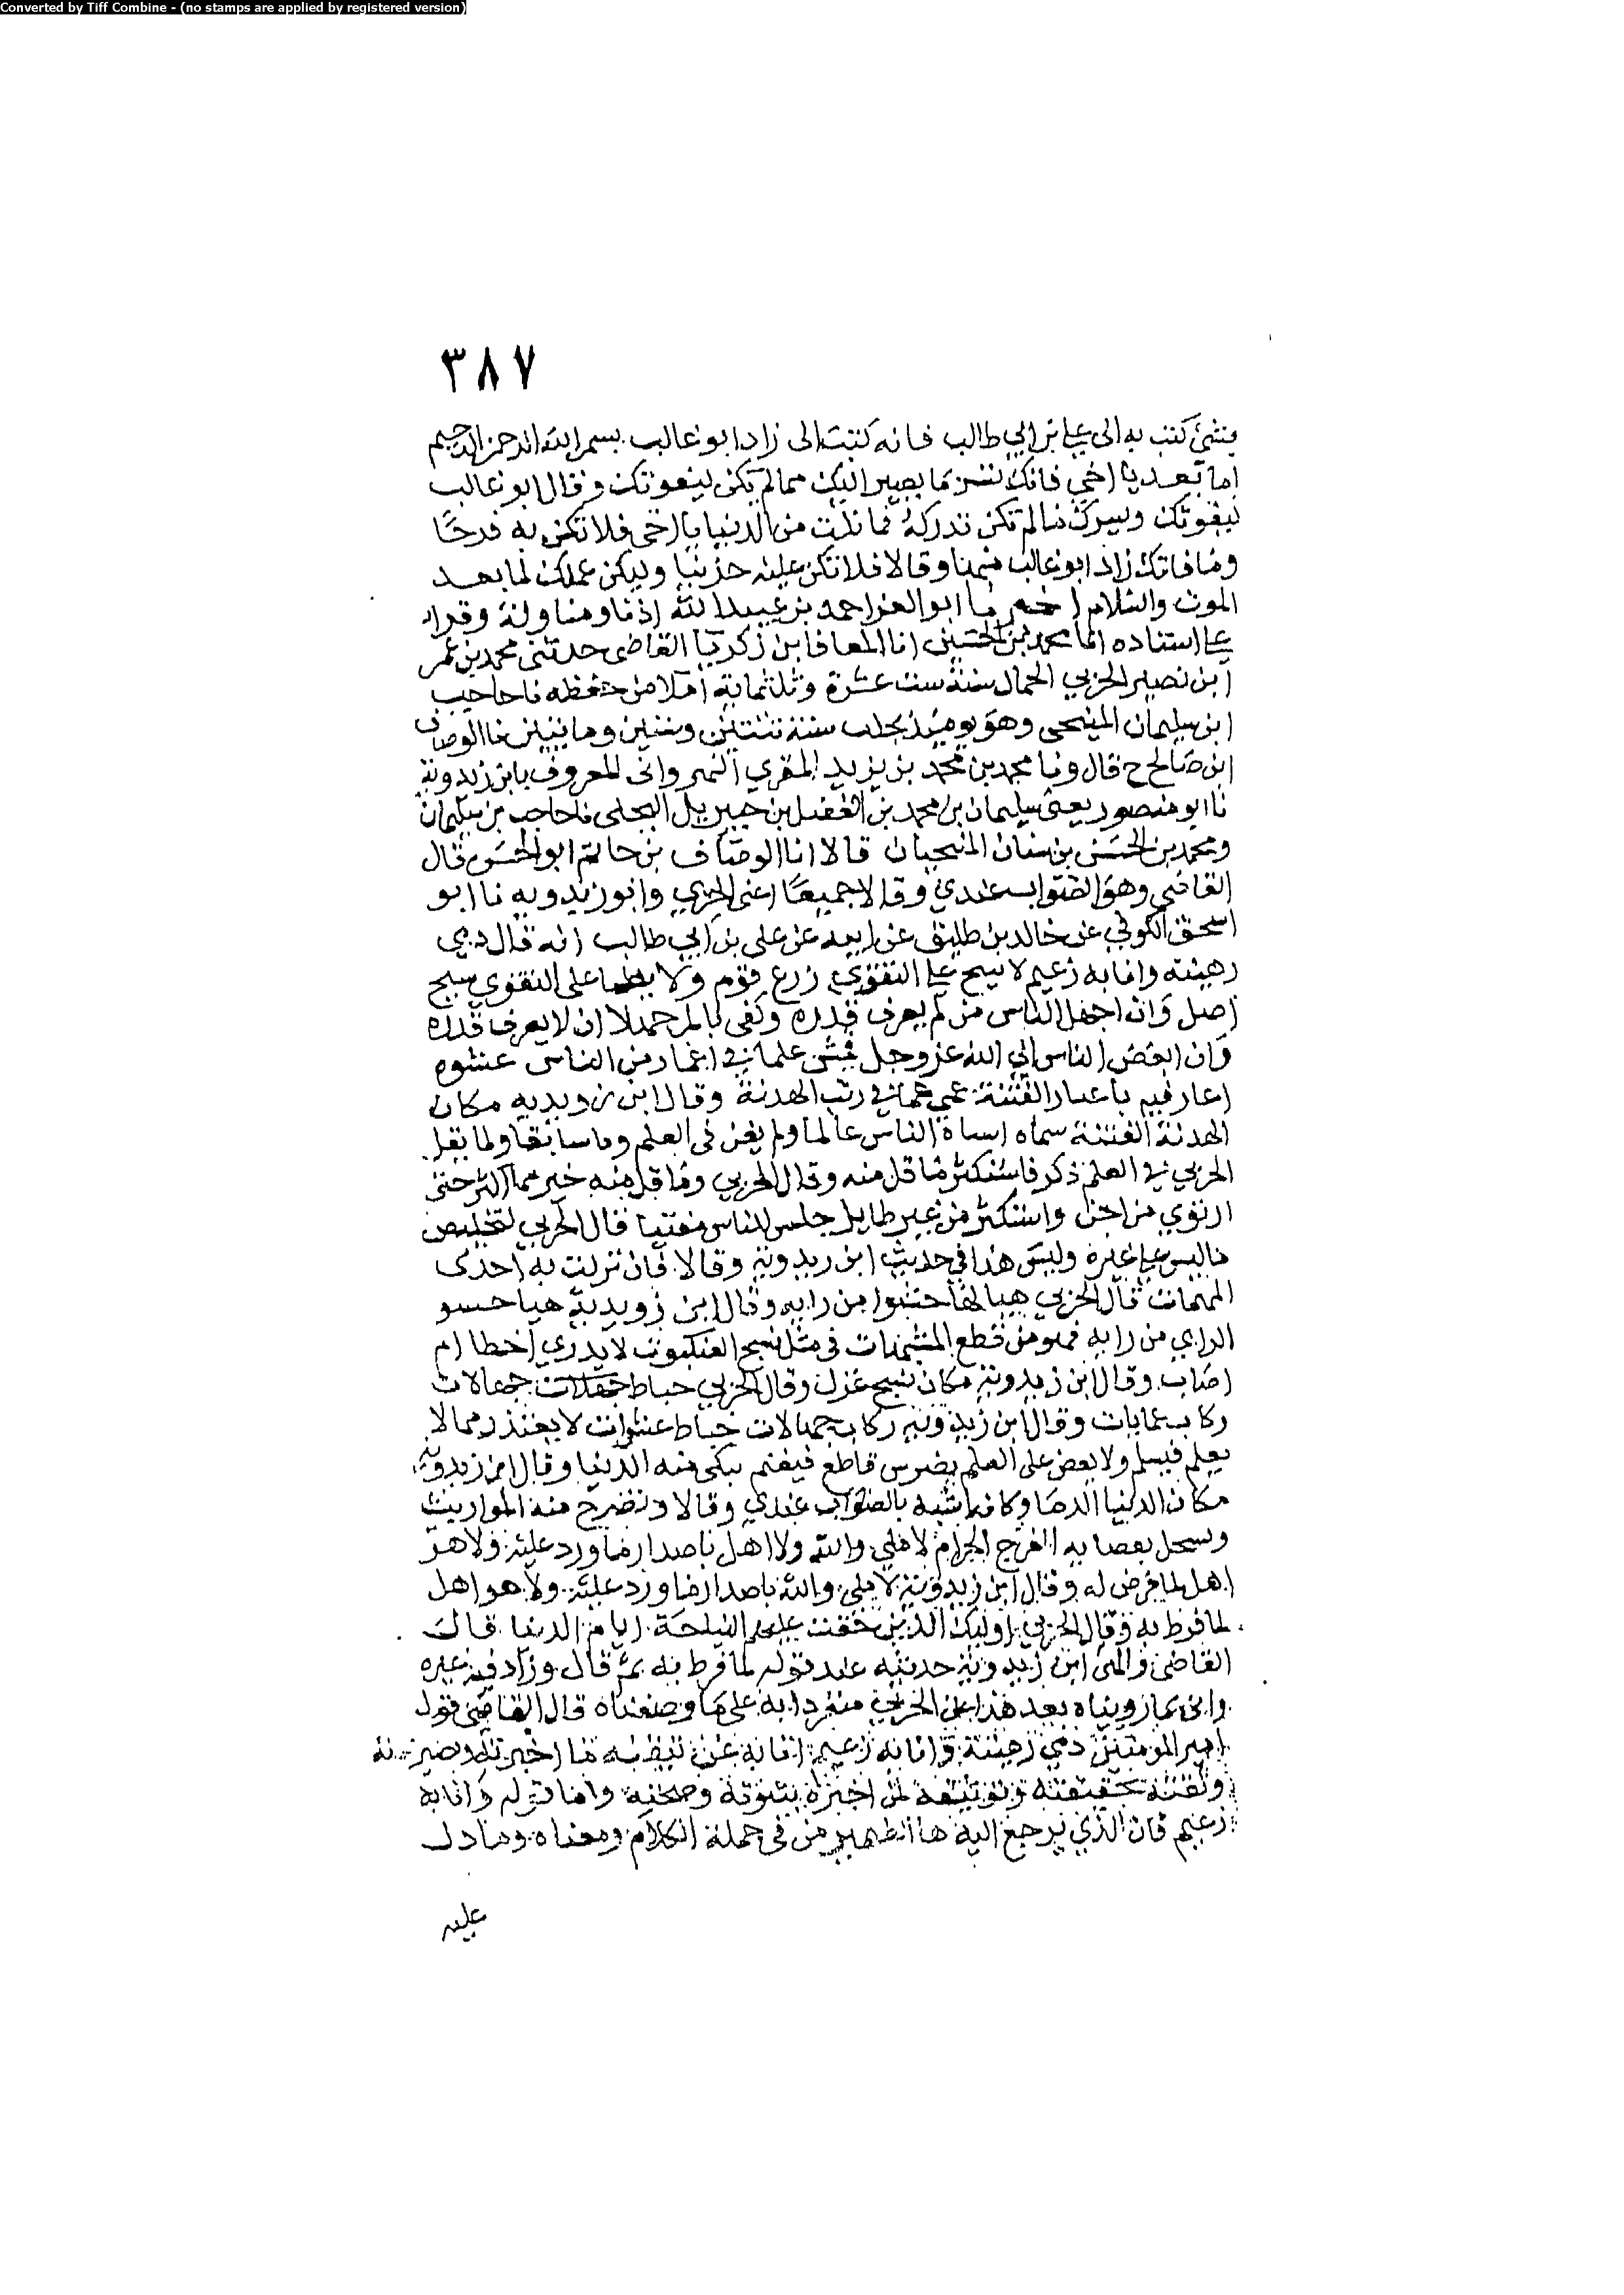 Converted by Tiff Combine - (no stamps are applied by registered version)
٣٨٧
بشيء كتب به الى علي بن ابي طالب فانه كتب الى زاد ابو غالب بسم الله الرحمن الرحيم
اما بعد يا اخي فانك تسر بما يصير اليك مما لم تكن ليفوتك وقال ابو غالب
ليفوتك ويسرك ما لم تكن تدركه فما نلت من الدنيا يا اخي فلا تكن به فرحا
وما فاتك زاد ابو غالب منها وقالا فلا تكن عليه حزينا وليكن عملك لما بعد
الموت والسلام اخبرنا ابو العز احمد بن عبيد الله اذنا ومناولة وقرا
علي اسناده انا محمد بن الحسين انا المعافا بن زكريا القاضي حدثني محمد بن عمر
ابن نصير الحربي الحمال سنة ست عشرة وثلثماية املا من حفظه نا حاجب
ابن سليمان المنبجي وهو يوميذ بحلب سنة ثنتين وستين ومايتين نا الوصاف
ابن صالح ح قال ونا محمد بن محمد بن يزيد المقري النهرواني المعروف بابن زيدوية
نا ابو منصور يعني سليمان بن محمد بن الفضل بن جبريل البجلي نا حاجب بن سليمان
ومحمد بن الحسن بن سنان المنبجيان قالا انا الوصاف بن حاتم ابو الحسن قال
القاضي وهو الصواب عندي وقالا جميعا اعني الحربي وابو زيدويه نا ابو
اسحق الكوفي عن خالد بن طليق عن ابيه عن علي بن ابي طالب انه قال ذمتي
رهينه وانا به زعيم لا يهيج علي التقوي زرع قوم ولا يظما على التقوي سبخ
اصل وان اجهل الناس من لم يعرف قدره وكفى بالمر جهلا ان لا يعرف قدره
وان ابغض الناس الي الله عز وجل قمش علما في اغمار من الناس عشوه
اغار فيه باغبار الفتنة عمي عما في ريب الهدنة وقال ابن زويديه مكان
الهدنة الفتنة سماه اسباه الناس عالما ولم يغن في العلم وما سابقا ولما يقل
الحربي في العلم ذكر فاستكثر ما قل منه وقال الحربي وما قل منه خير مما اكثر حتى
ارتوي من اجن واستكثر من غير طايل جلس للناس مفتيا قال الحربي لتخليص
ما ليس علي غيره وليس هذا في حديث ابن زيدويه وقالا فان نزلت به احدى
المهمات قال الحربي هيا لها حشوا من رايه وقال ابن زويدية هيا حسو
الراي من رايه فهو من قطع المشتبهات في مثل نسج العنكبوت لا يدري اخطا ام
اصاب وقال ابن زيدويه مكان نسج غزل وقال الحربي خباط جهالات
ركاب عمايات وقال ابن زيدويه ركاب جهالات خباط عشوات لا يعتذر مما لا
يعلم فيسلم ولا يعض على العلم بضرس قاطع فيغنم تبكي منه الدنيا وقال ابن زيدويه
مكان الدنيا الدما وكانه اشبه بالصواب عندي وقالا وتصرخ منه المواريث
ويستحل بقضايه الفرج الحرام لا ملي والله ولا اهل باصدار ما ورد عليه ولا هو
اهل لما فرض له وقال ابن زيدويه لا ملي والله باصدار ما ورد عليه ولا هو اهل
لما فرط به وقال الحربي اوليك الذين حقت عليهم النياحة ايام الدنيا قال
القاضي وانتهى ابن زيدويه حديثه عند قوله لما فرط به ثم قال وزاد فيه غيره
واتى بما رويناه بعد هذا عن الحربي منفردا به على ما وصفناه قال القاضي قول
امير المومنين ذمتي رهينة وانا به زعيم انا به عن
وثقته بحقيقته وتوثيقه لمن اخبره بثبوته وصحته واما قوله وانا به
زعيم فان الذي ترجع اليه ها الضمير من في جملة الكلام ومعناه وما دل
عليه